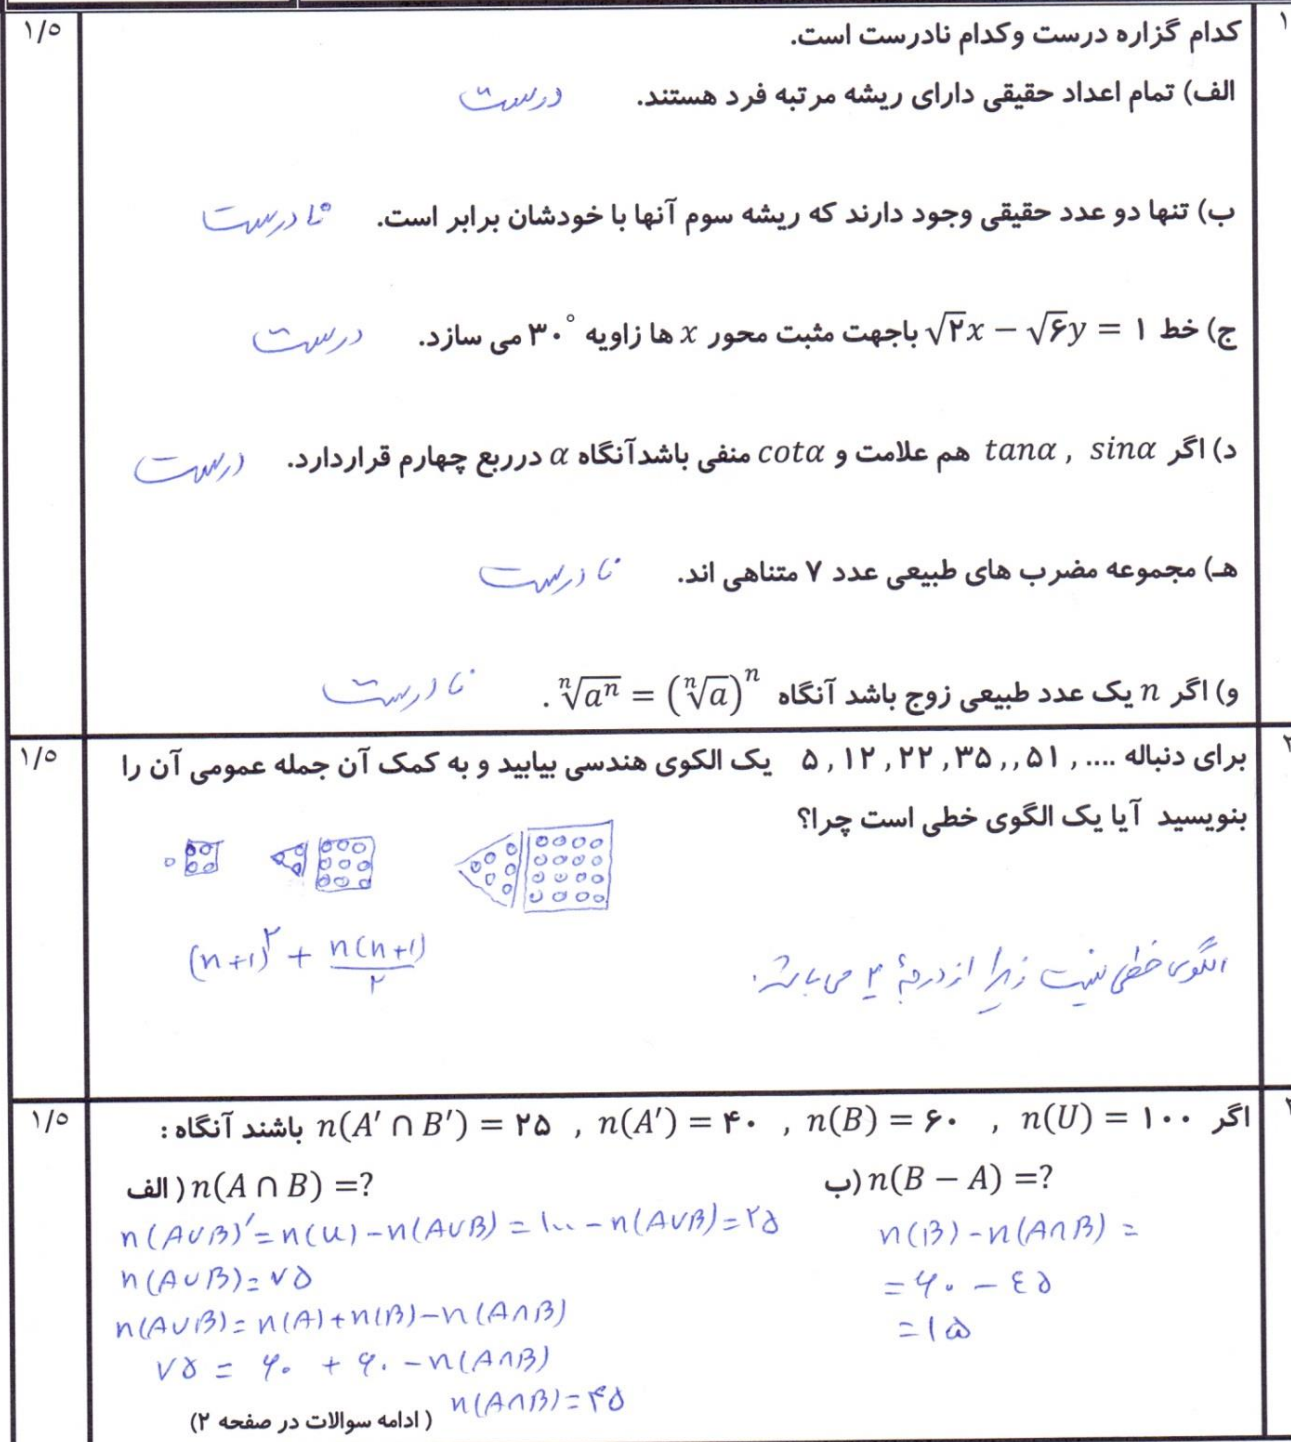 ۱
۱/۵
کدام گزاره درست وکدام نادرست است.
الف) تمام اعداد حقیقی دارای ریشه مرتبه فرد هستند. درست
ب) تنها دو عدد حقیقی وجود دارند که ریشه سوم آنها با خودشان برابر است. نادرست
ج) خط √۲x − √۶y = ۱ باجهت مثبت محور x ها زاویه ۳۰° می سازد. درست
د) اگر tanα , sinα هم علامت و cotα منفی باشدآنگاه α درربع چهارم قراردارد. درست
هـ) مجموعه مضرب های طبیعی عدد ۷ متناهی اند. نادرست
و) اگر n یک عدد طبیعی زوج باشد آنگاه ⁿ√aⁿ = (ⁿ√a)ⁿ .
نادرست
۱/۵
برای دنباله ۵ , ۱۲ , ۲۲ , ۳۵ , , ۵۱ , .... یک الکوی هندسی بیابید و به کمک آن جمله عمومی آن را
بنویسید آیا یک الگوی خطی است چرا؟
(n+۱)^۲ + n(n+۱)/۲
الگوی خطی نیست زیرا از درجهٔ ۲ می باشد.
۱/۵
اگر n(U) = ۱۰۰ , n(B) = ۶۰ , n(A′) = ۴۰ , n(A′ ∩ B′) = ۲۵ باشند آنگاه :
الف ) n(A ∩ B) =?
n(A∪B)′ = n(U) − n(A∪B) = ۱۰۰ − n(A∪B) = ۲۵
n(A∪B) = ۷۵
n(A∪B) = n(A) + n(B) − n(A∩B)
۷۵ = ۶۰ + ۶۰ − n(A∩B)
n(A∩B) = ۴۵
ب) n(B − A) =?
n(B) − n(A∩B) =
= ۶۰ − ٤۵
= ۱۵
( ادامه سوالات در صفحه ۲)